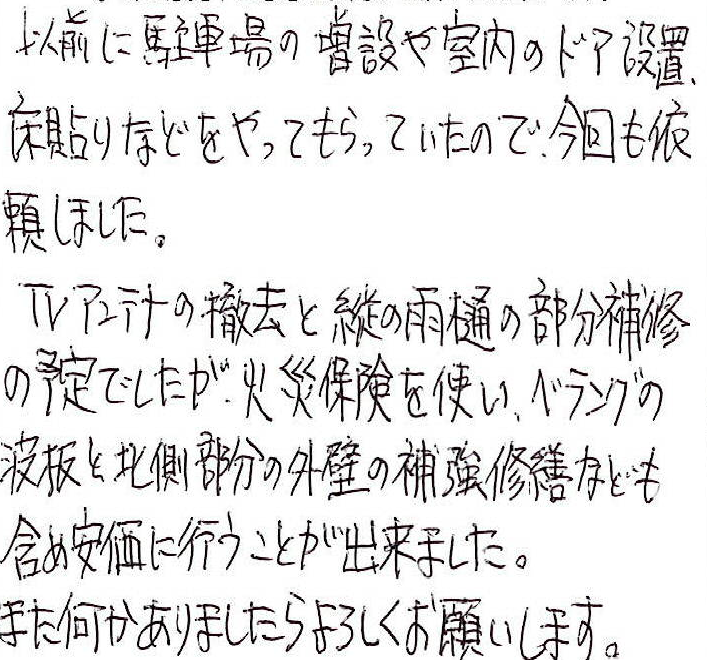 以前に駐車場の増設や室内のドア設置、
床貼りなどをやってもらっていたので、今回も依
頼しました。
TVアンテナの撤去と縦の雨樋の部分補修
の予定でしたが、火災保険を使い、ベランダの
波板と北側部分の外壁の補強修繕なども
含め安価に行うことが出来ました。
また何かありましたらよろしくお願いします。